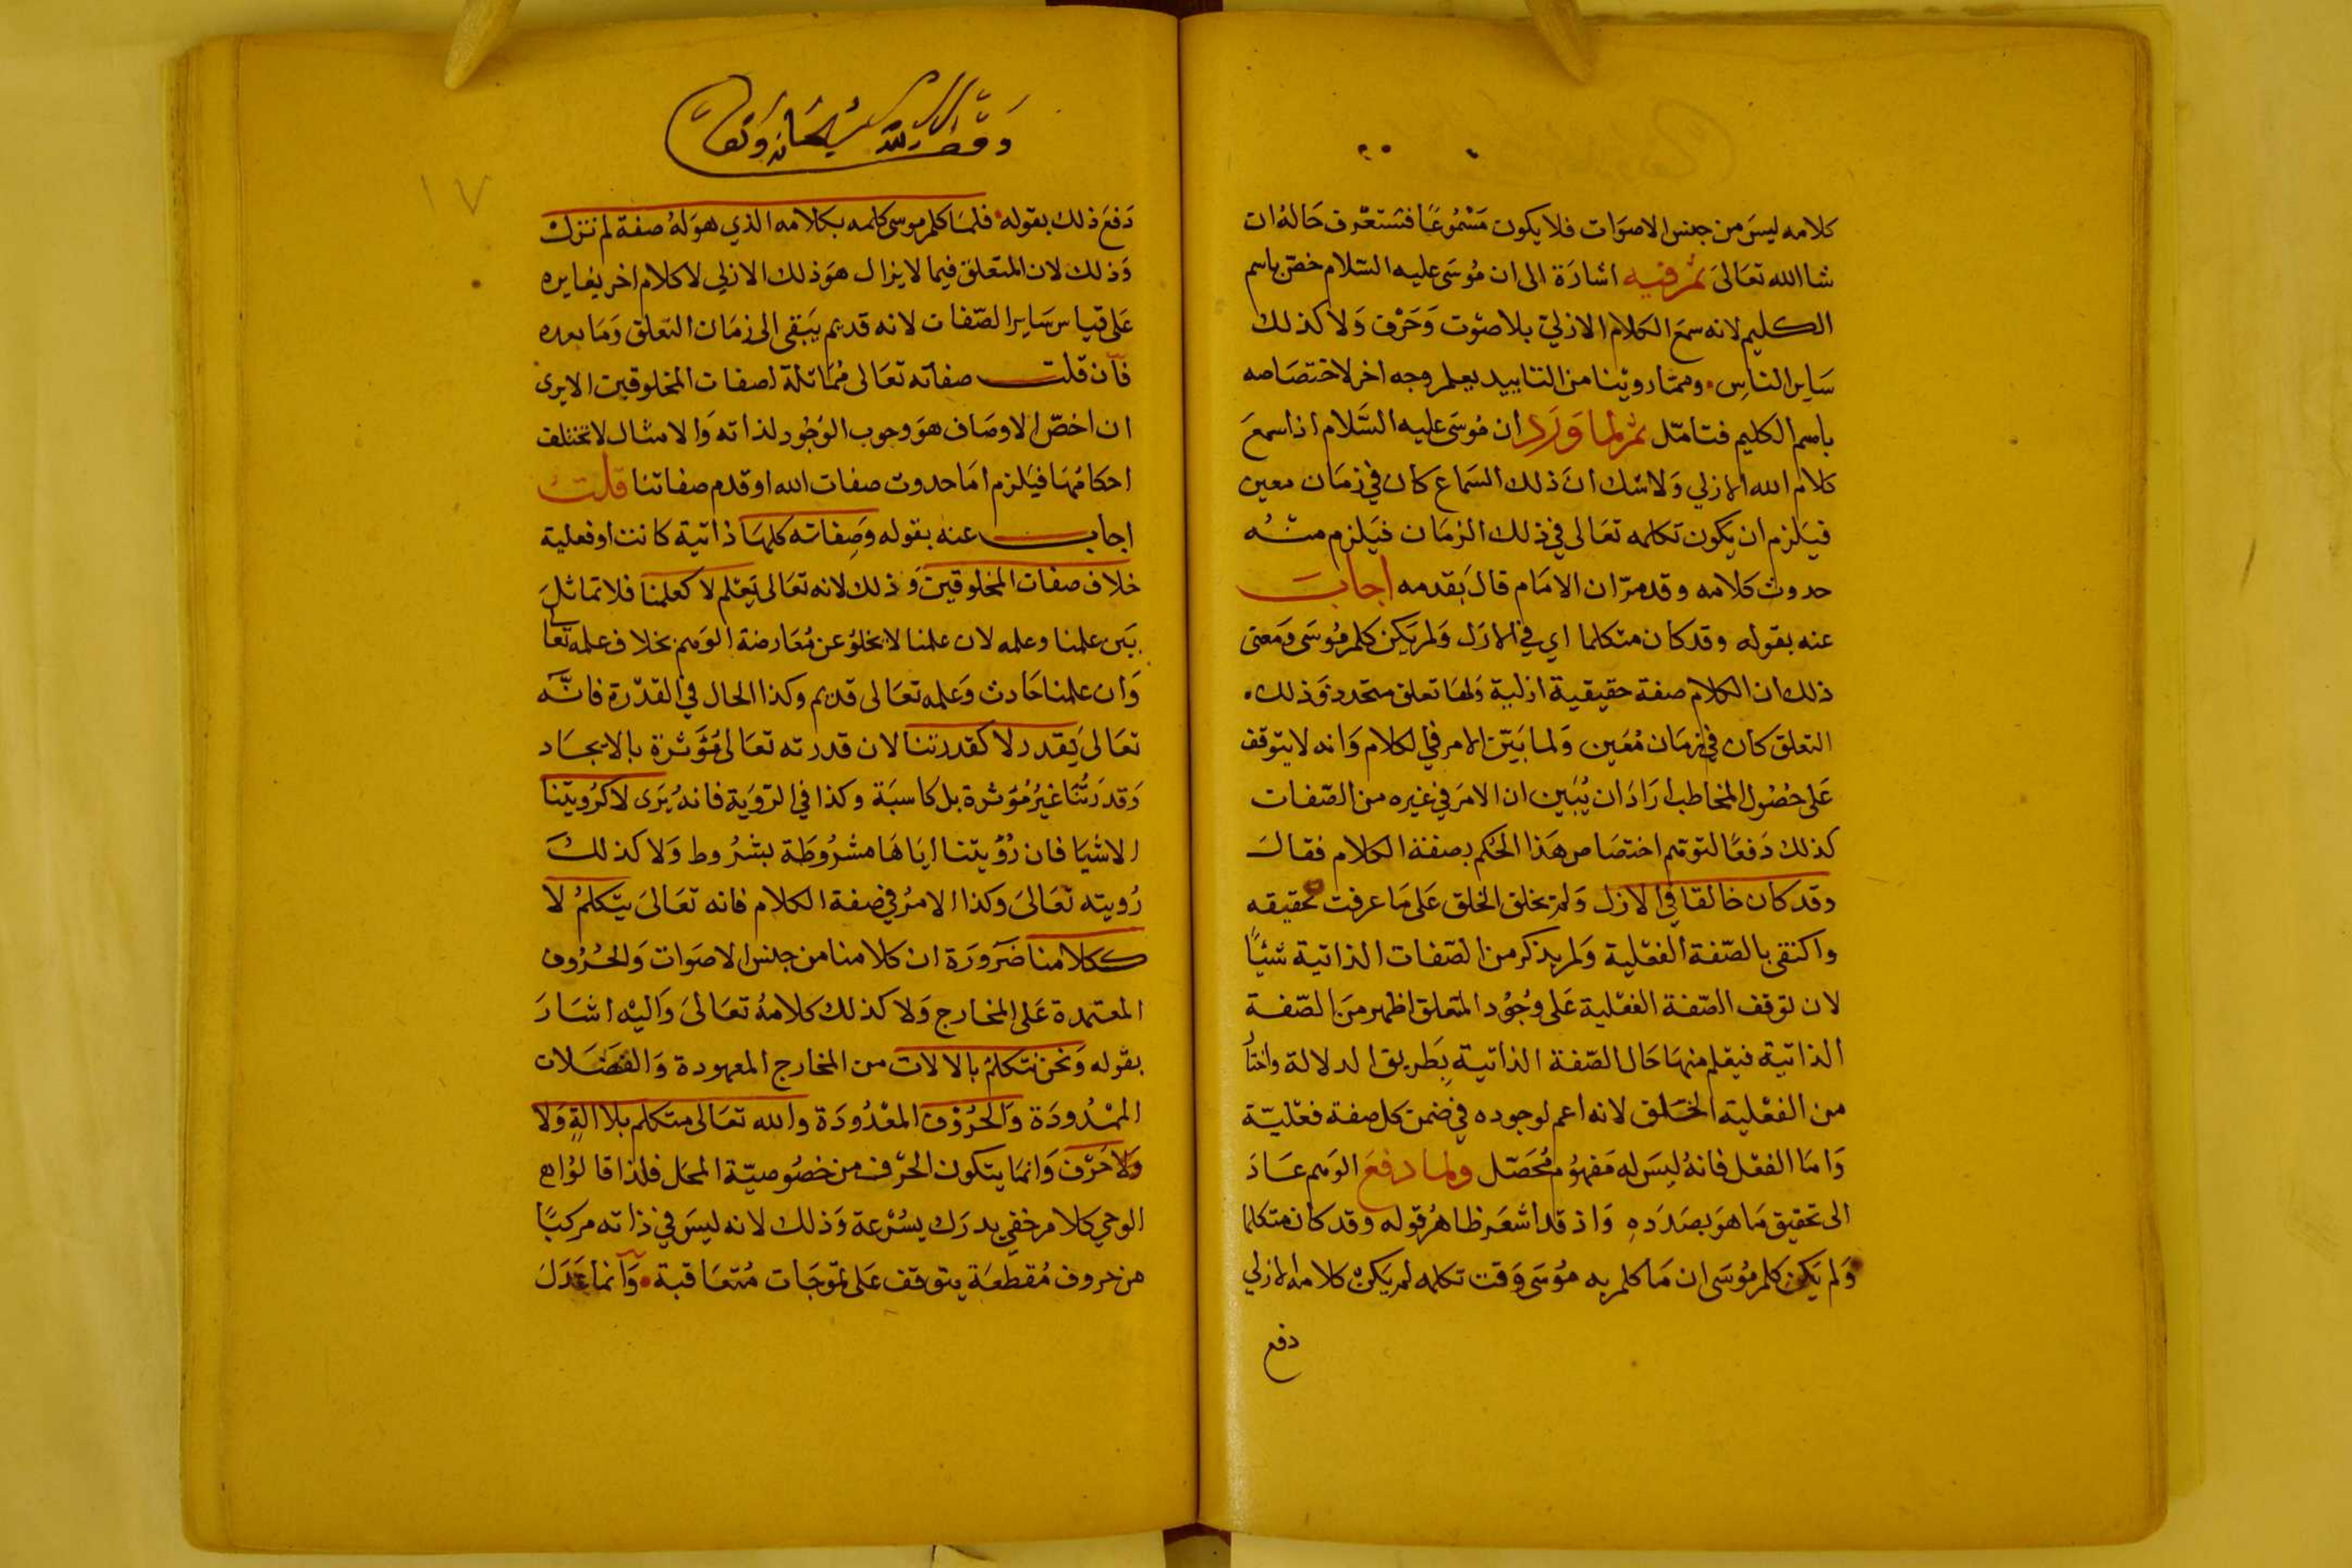 كلامه ليسَ من جنس الاصوَات فلا يكون مَسْمُوعًا فستعرف حَالهُ ان
شا الله تعَالىَ ثم فيه اشارَة الى ان مُوسَى عليه السّلام خصّ باسم
الكليم لانه سمعَ الكلام الازليّ بلا صَوْت وَحَرْف وَلا كذلك
سَاير الناسِ ٠ وممّا روينا من التاييد يعلم وجه اخر لاختصَاصه
باسم الكليم فتامّل ثم لما وَرَد ان مُوسَى عليه السَّلام اذا سمعَ
كلام الله الازلي وَلا شك انَ ذلك السَماع كان في زمَان معين
فيَلزم ان يكون تكلمه تعَالى في ذلك الزمَان فيَلزم منْه
حدوث كلامه وقد مرّ ان الامَام قالَ بقدمه اجابَ
عنه بقوله وقد كان متكلما اي في الازَل وَلم يَكن كلم مُوسَى وَمَعنى
ذلك ان الكلام صفة حقيقية ازلية وَلهَا تعلق متجدد وَذلك
التعلق كان في زمَان مُعَين وَلما بَيّن الامر في الكلام وَانه لا يتوقف
عَلى حُصُول المخاطب ارَادَ ان يُبَين ان الامرَ في غيره من الصّفات
كذلك دَفعًا لتوهّم اختصَاص هَذا الحكم بصفة الكلام فقالَ
وقد كان خالقا في الازل وَلم يخلق الخلق عَلى مَا عرفت تحقيقه
واكتفى بالصّفة الفعْلية وَلم يذكر من الصّفات الذاتية شيئًا
لان توقف الصّفة الفعْلية عَلى وجُوْد المتعلق اظهر منَ الصّفة
الذاتية فيعْلم منهَا حَال الصّفة الذاتية بطَريق الدلالة واختا
من الفعْلية الخلق لانه اعم لوجوده في ضمن كل صفة فعْليّة
وَامَا الفعْل فانهُ ليسَ له مَفهوُم مُحَصّل ولما دفعَ الوَهم عَادَ
الى تحقيق مَا هوَ بصَدَدِهِ وَاذ قد اشعَر ظاهرُ قوله وقد كان متكلما
وَلم يَكن كلم مُوسَى ان مَا كلم به مُوسَى وَقت تكلمه لم يَكن كلامه الازلي
دفع
وَقف لله سُبحَانه وَتعَا
١٧
دَفعَ ذلك بقوله ٠ فلمَا كلم موسى كلمه بكلامه الذي هوَ لهُ صفة لم تزل
وَذلك لان المتعلق فيما لا يزال هوَ ذلك الازلي لا كلام اخر يغايره
عَلى قياس سَاير الصّفات لانه قديم يَبقى الى زمَان التعلق وَمَا بعده
فآن قلت صفاته تعَالى مُمَاثلة لصفات المخلوقين الا يرى
ان اخصّ الاوصَاف هوَ وجوب الوُجُود لذاته وَالامثال لا تختلف
احكامُهَا فيَلزم امَا حدوث صفات الله او قدم صفاتنا قلت
اجاب عنه بقوله وَصِفاته كلهَا ذاتية كانت او فعلية
خلاف صفات المخلوقين وَذلك لانه تعَالى يَعْلم لا كعلمنا فلا تماثلَ
بَين علمنا وعلمه لان علمنا لا يخلوُ عن مُعَارضة الوَهم بخلاف علمه تعَا
وَان علمنا حَادث وَعلمه تعَالى قديم وكذا الحال في القدْرة فانّه
تعَالىَ يَقدر لا كقدرتنا لان قدرته تعَالى مُؤَثرة بالايجَاد
وَقدرَتُنا غيرُ مُؤثرة بل كاسبَة وكذا في الرّوَية فانهُ يَرَى لا كرُويتنا
الاشيَا فان رُؤيتنا ايَاهَا مشرُوطَة بشرُوط وَلا كذلك
رُويته تعَالىَ وَكذا الامرُ في صفة الكلام فانه تعَالىَ يتكلمُ لا
ككلامنا ضَرَورَة ان كلامنا من جنس الاصوَات وَالحُرُوف
المعتمدة عَلى المخارج وَلا كذلك كلامهُ تعَالىَ وَاليْه اشَارَ
بقوله وَنحن نتكلم بالالات من المخارج المعهودة وَالعَضَلات
الممْدُودَة وَالحُرُوْف المعْدُودَة والله تعَالى متكلم بلا الةٍ وَلا
وَلا حَرْف وَانمَا يتكون الحرْف من خصُوصيّة المحل فلذا قالوُا
الوحي كلام خفي يدرَك بسُرْعة وَذلك لانه ليسَ في ذاته مركبًا
من حروف مُقطعَة يتوقف عَلى تموّجَات مُتعَاقبة ٠ وَآنما عَدَلَ